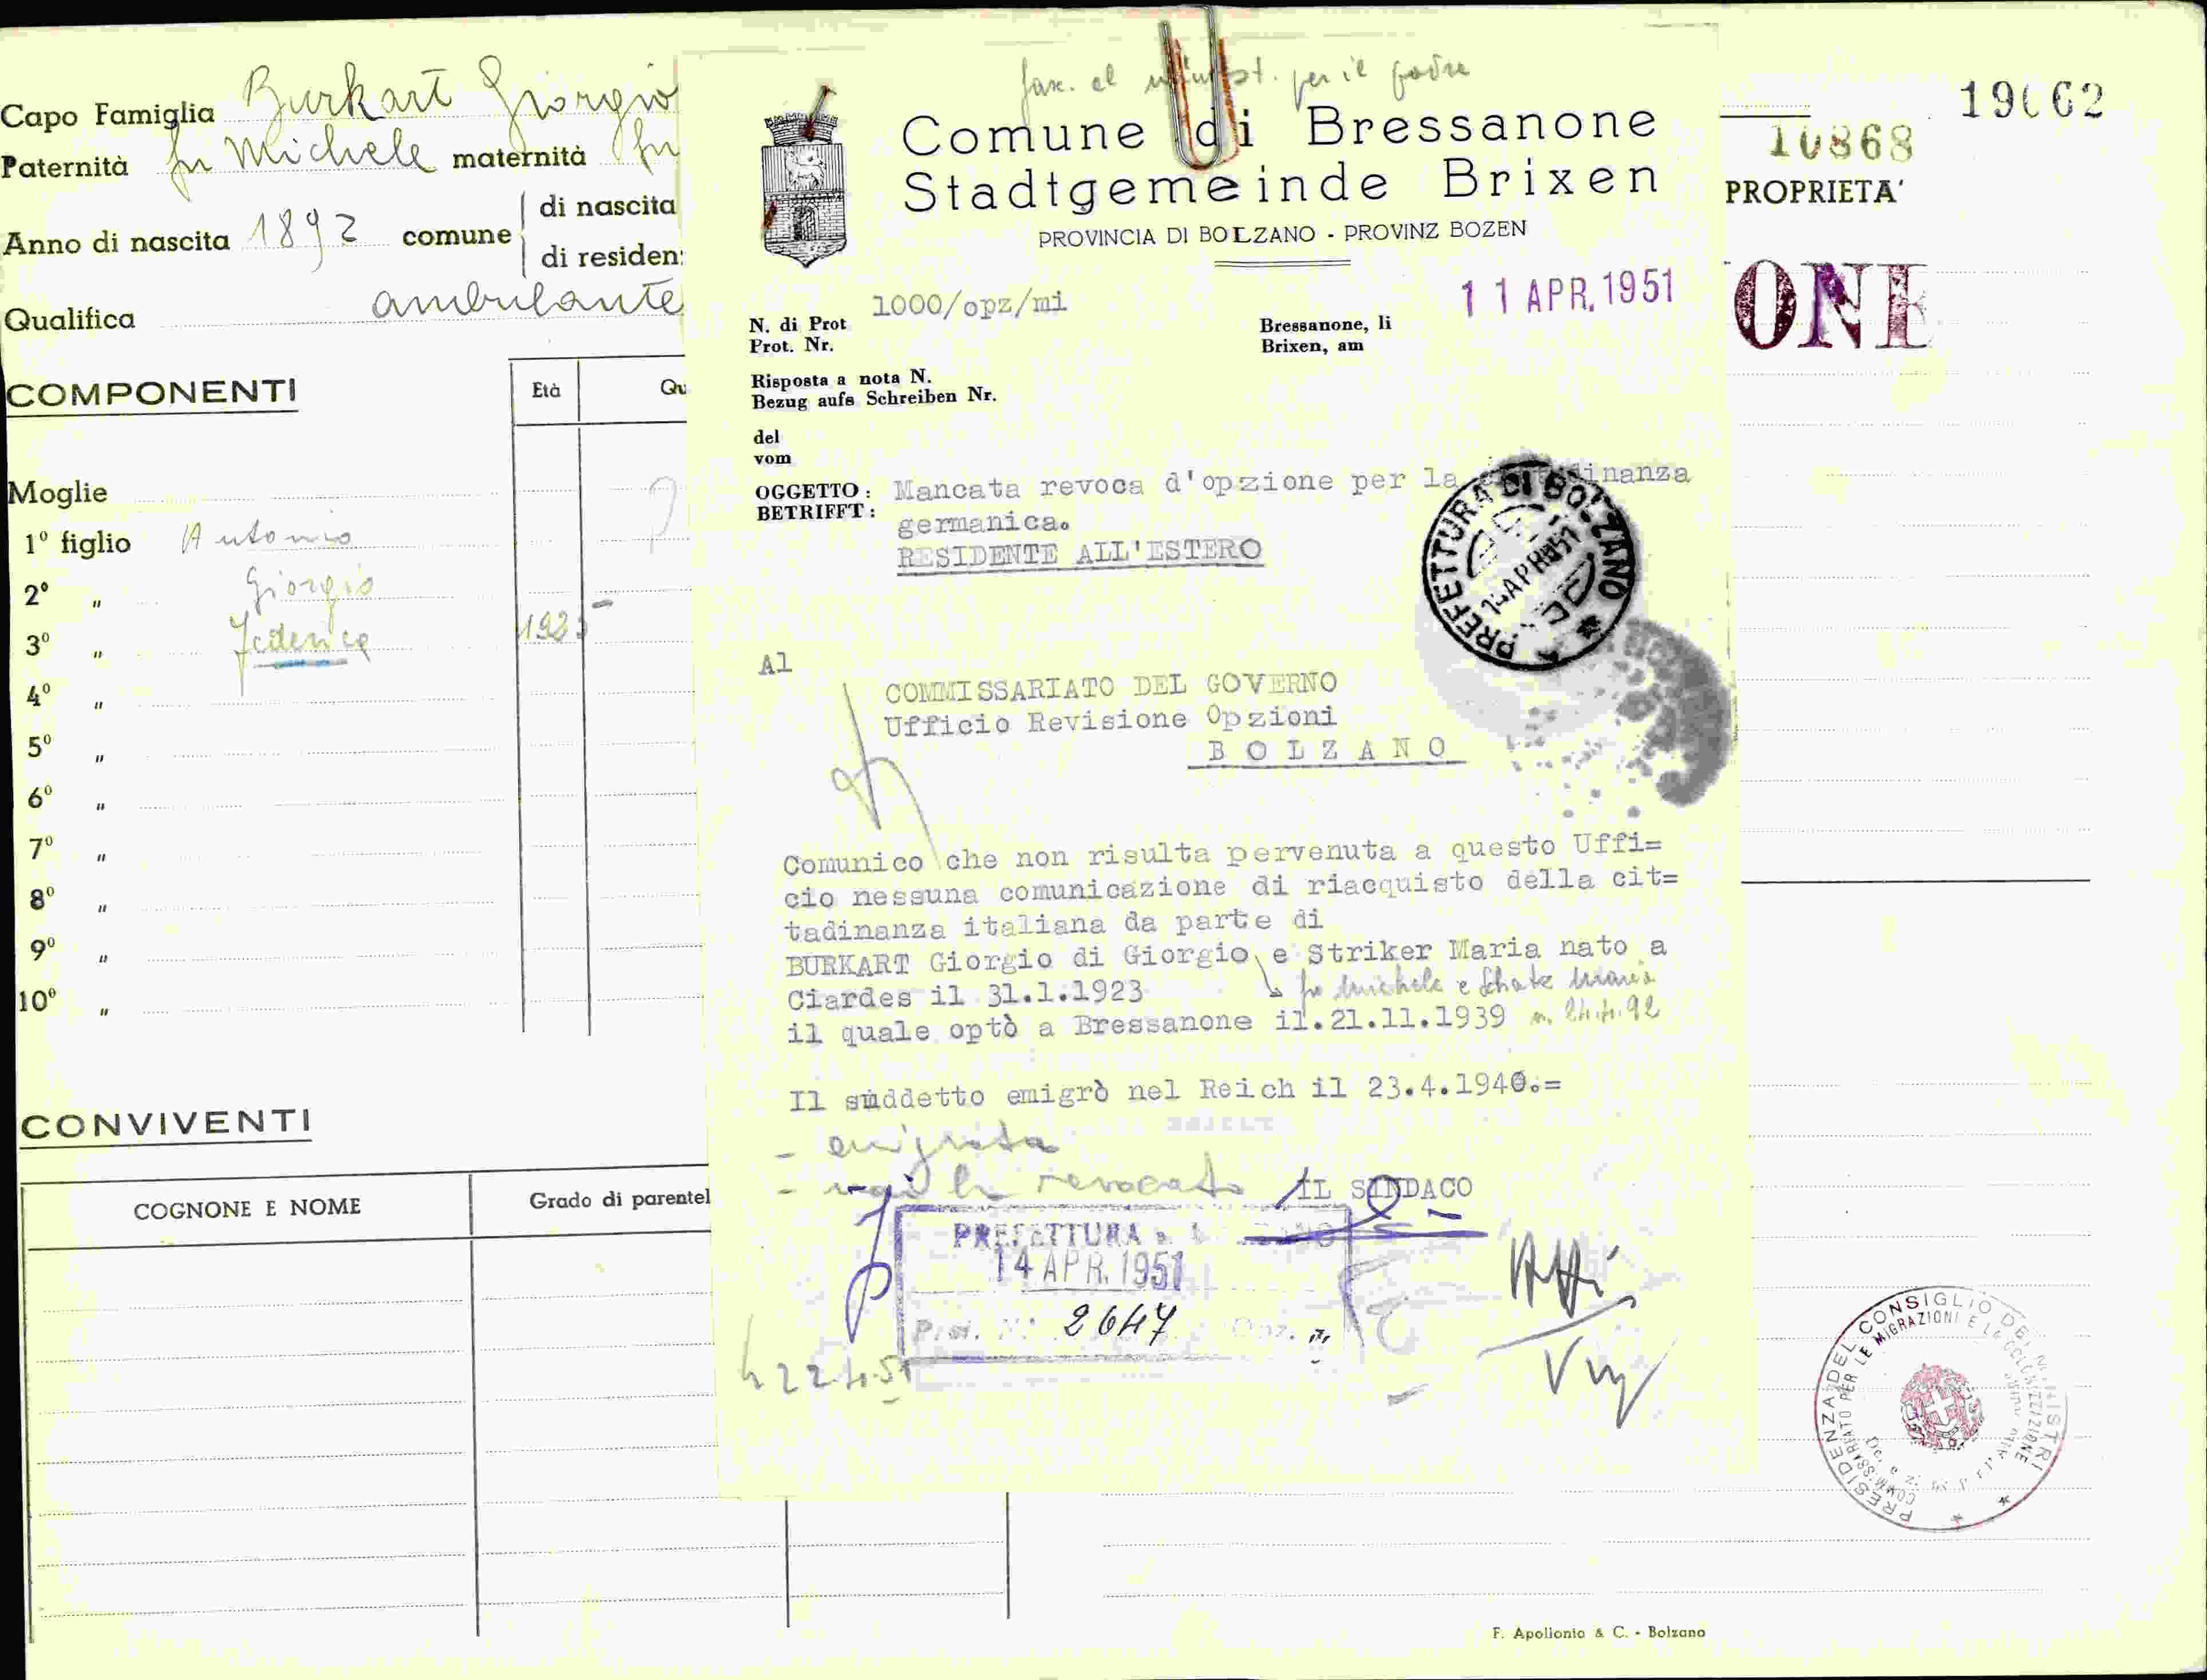 Capo Famiglia Burkart Giorgio
Paternità fu Michele maternità fu
Anno di nascita 1892 comune di nascita
di residen
Qualifica ambulante
COMPONENTI
Età
Qu
Moglie
1º figlio Antonio
2º " Giorgio
3º " Federica 1925
4º "
5º "
6º "
7º "
8º "
9º "
10º "
CONVIVENTI
COGNONE E NOME
Grado di parentel
per il padre
Comune di Bressanone
Stadtgemeinde Brixen
PROVINCIA DI BOLZANO - PROVINZ BOZEN
1000/opz/mi
N. di Prot
Prot. Nr.
11 APR. 1951
Bressanone, li
Brixen, am
Risposta a nota N.
Bezug aufs Schreiben Nr.
del
vom
OGGETTO : Mancata revoca d'opzione per la cittadinanza
BETRIFFT : germanica.
RESIDENTE ALL'ESTERO
PREFETTURA DI BOLZANO
14 APR 1951
Al
COMMISSARIATO DEL GOVERNO
Ufficio Revisione Opzioni
BOLZANO
Comunico che non risulta pervenuta a questo Uffi=
cio nessuna comunicazione di riacquisto della cit=
tadinanza italiana da parte di
BURKART Giorgio di Giorgio e Striker Maria nato a
Ciardes il 31.1.1923 fu Michele e Schatz Maria
il quale optò a Bressanone il.21.11.1939 n. 24.4.92
Il suddetto emigrò nel Reich il 23.4.1940.=
- emigrato
- revocato
IL SINDACO
PREFETTURA
14 APR. 1951
2647
22.4.51
Atti
19662
10868
PROPRIETA'
ONE
PRESIDENZA DEL CONSIGLIO DEI MINISTRI
COMMISSARIATO PER LE MIGRAZIONI E LA COLONIZZAZIONE
F. Apollonio & C. - Bolzano